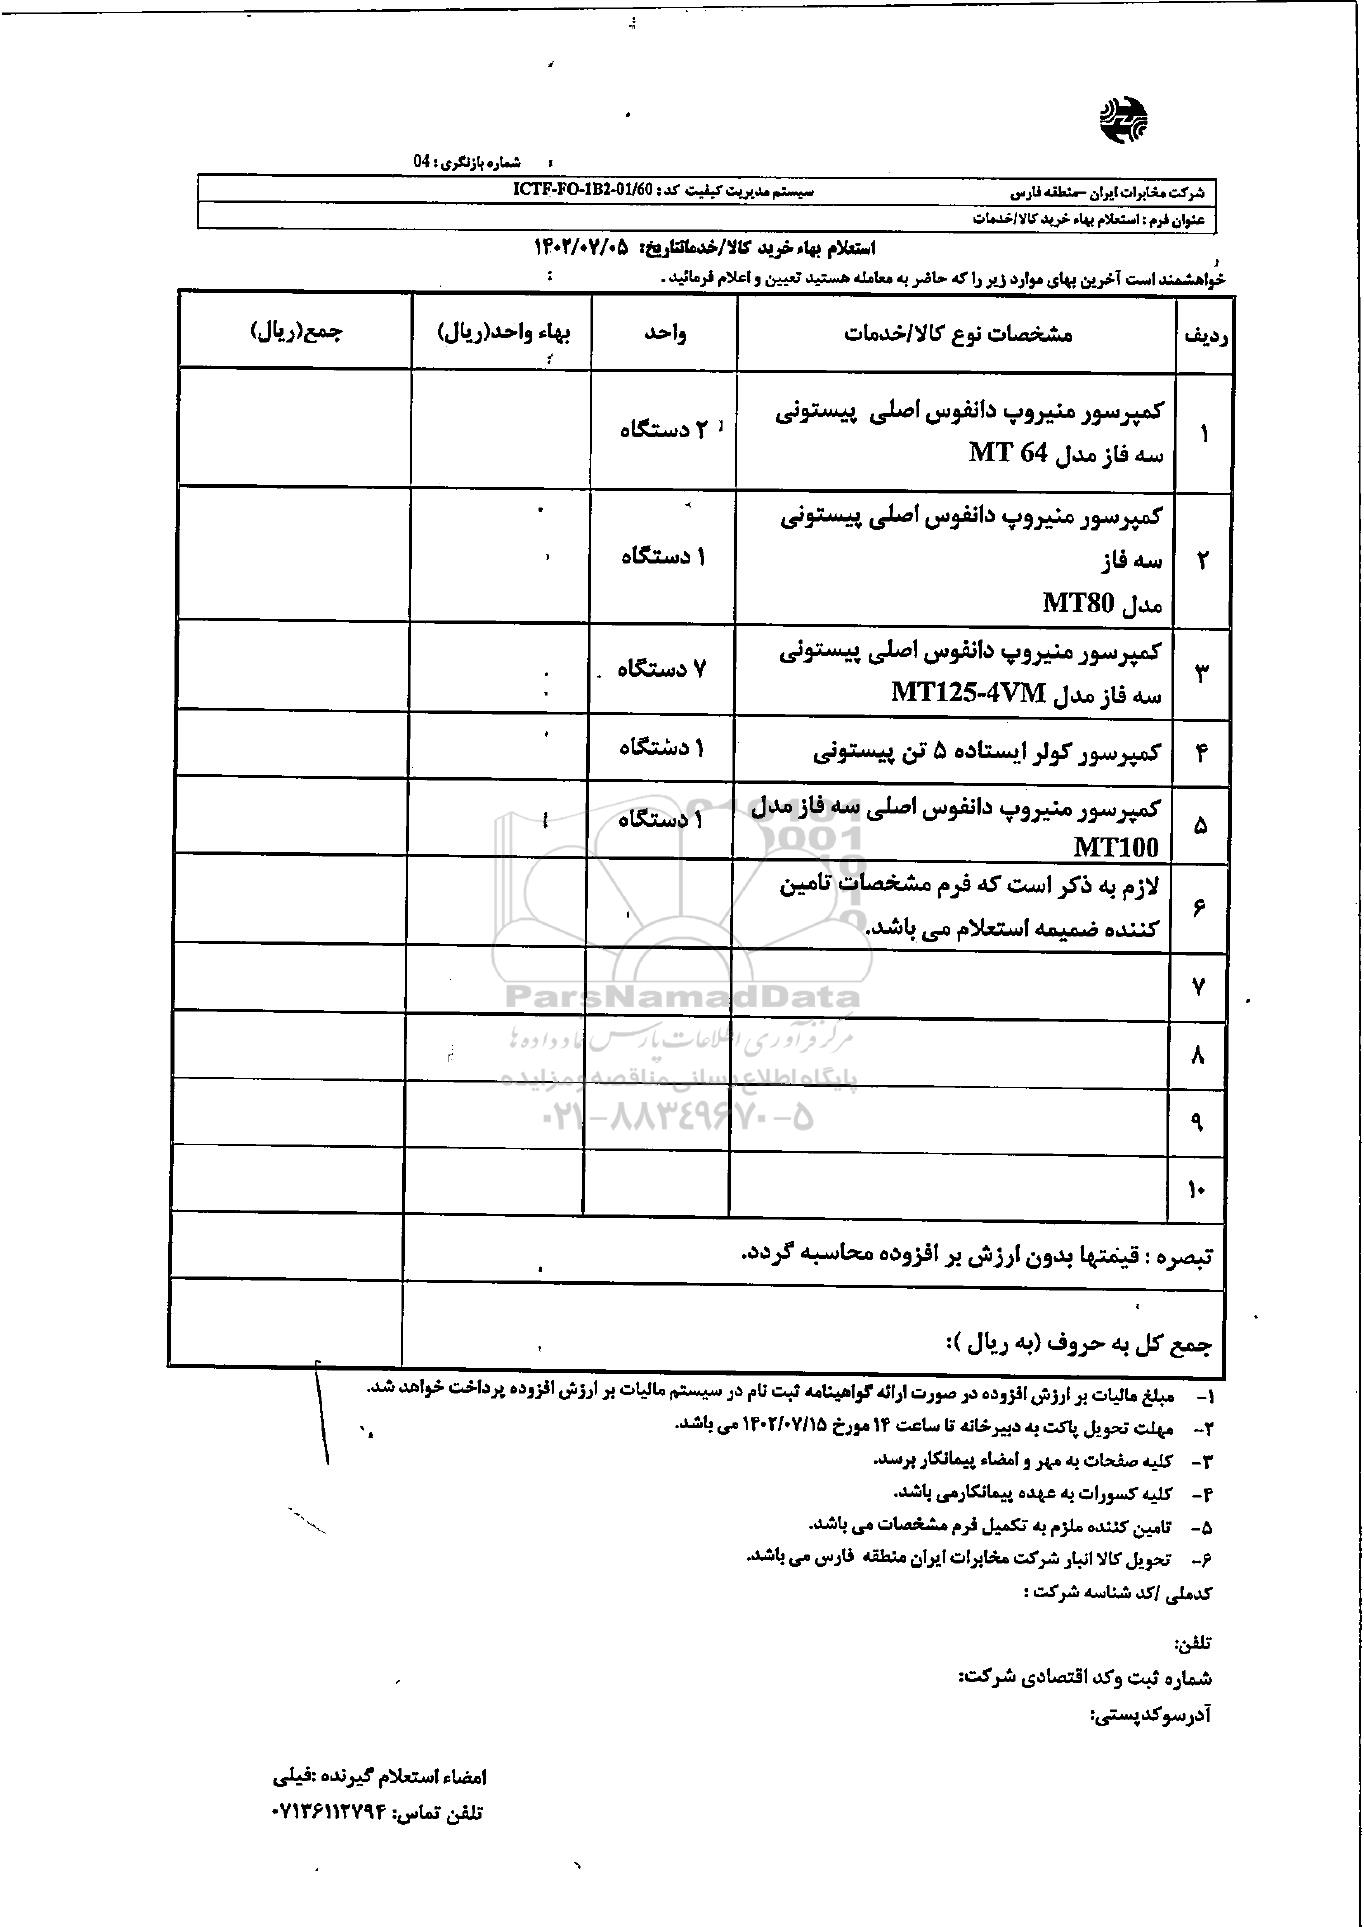 شماره بازنگری : 04
شرکت مخابرات ایران –منطقه فارس سیستم مدیریت کیفیت کد : ICTF-FO-1B2-01/60
عنوان فرم : استعلام بهاء خرید کالا/خدمات
استعلام بهاء خرید کالا/خدماتتاریخ: ۱۴۰۲/۰۷/۰۵
خواهشمند است آخرین بهای موارد زیر را که حاضر به معامله هستید تعیین و اعلام فرمائید.
ردیف مشخصات نوع کالا/خدمات واحد بهاء واحد(ریال) جمع(ریال)
۱ کمپرسور منیروپ دانفوس اصلی پیستونی
سه فاز مدل MT 64
۲ دستگاه
۲ کمپرسور منیروپ دانفوس اصلی پیستونی
سه فاز
مدل MT80
۱ دستگاه
۳ کمپرسور منیروپ دانفوس اصلی پیستونی
سه فاز مدل MT125-4VM
۷ دستگاه
۴ کمپرسور کولر ایستاده ۵ تن پیستونی ۱ دستگاه
۵ کمپرسور منیروپ دانفوس اصلی سه فاز مدل
MT100
۱ دستگاه
۶ لازم به ذکر است که فرم مشخصات تامین
کننده ضمیمه استعلام می باشد.
۷
۸
۹
۱۰
ParsNamadData
مرکز فرآوری اطلاعات پارس نماد داده ها
پایگاه اطلاع رسانی مناقصه و مزایده
۰۲۱-۸۸۳۴۹۶۷۰-۵
تبصره : قیمتها بدون ارزش بر افزوده محاسبه گردد.
جمع کل به حروف (به ریال ):
۱- مبلغ مالیات بر ارزش افزوده در صورت ارائه گواهینامه ثبت نام در سیستم مالیات بر ارزش افزوده پرداخت خواهد شد.
۲- مهلت تحویل پاکت به دبیرخانه تا ساعت ۱۴ مورخ ۱۴۰۲/۰۷/۱۵ می باشد.
۳- کلیه صفحات به مهر و امضاء پیمانکار برسد.
۴- کلیه کسورات به عهده پیمانکارمی باشد.
۵- تامین کننده ملزم به تکمیل فرم مشخصات می باشد.
۶- تحویل کالا انبار شرکت مخابرات ایران منطقه فارس می باشد.
کدملی /کد شناسه شرکت :
تلفن:
شماره ثبت وکد اقتصادی شرکت:
آدرسوکدپستی:
امضاء استعلام گیرنده :فیلی
تلفن تماس: ۰۷۱۳۶۱۱۲۷۹۴